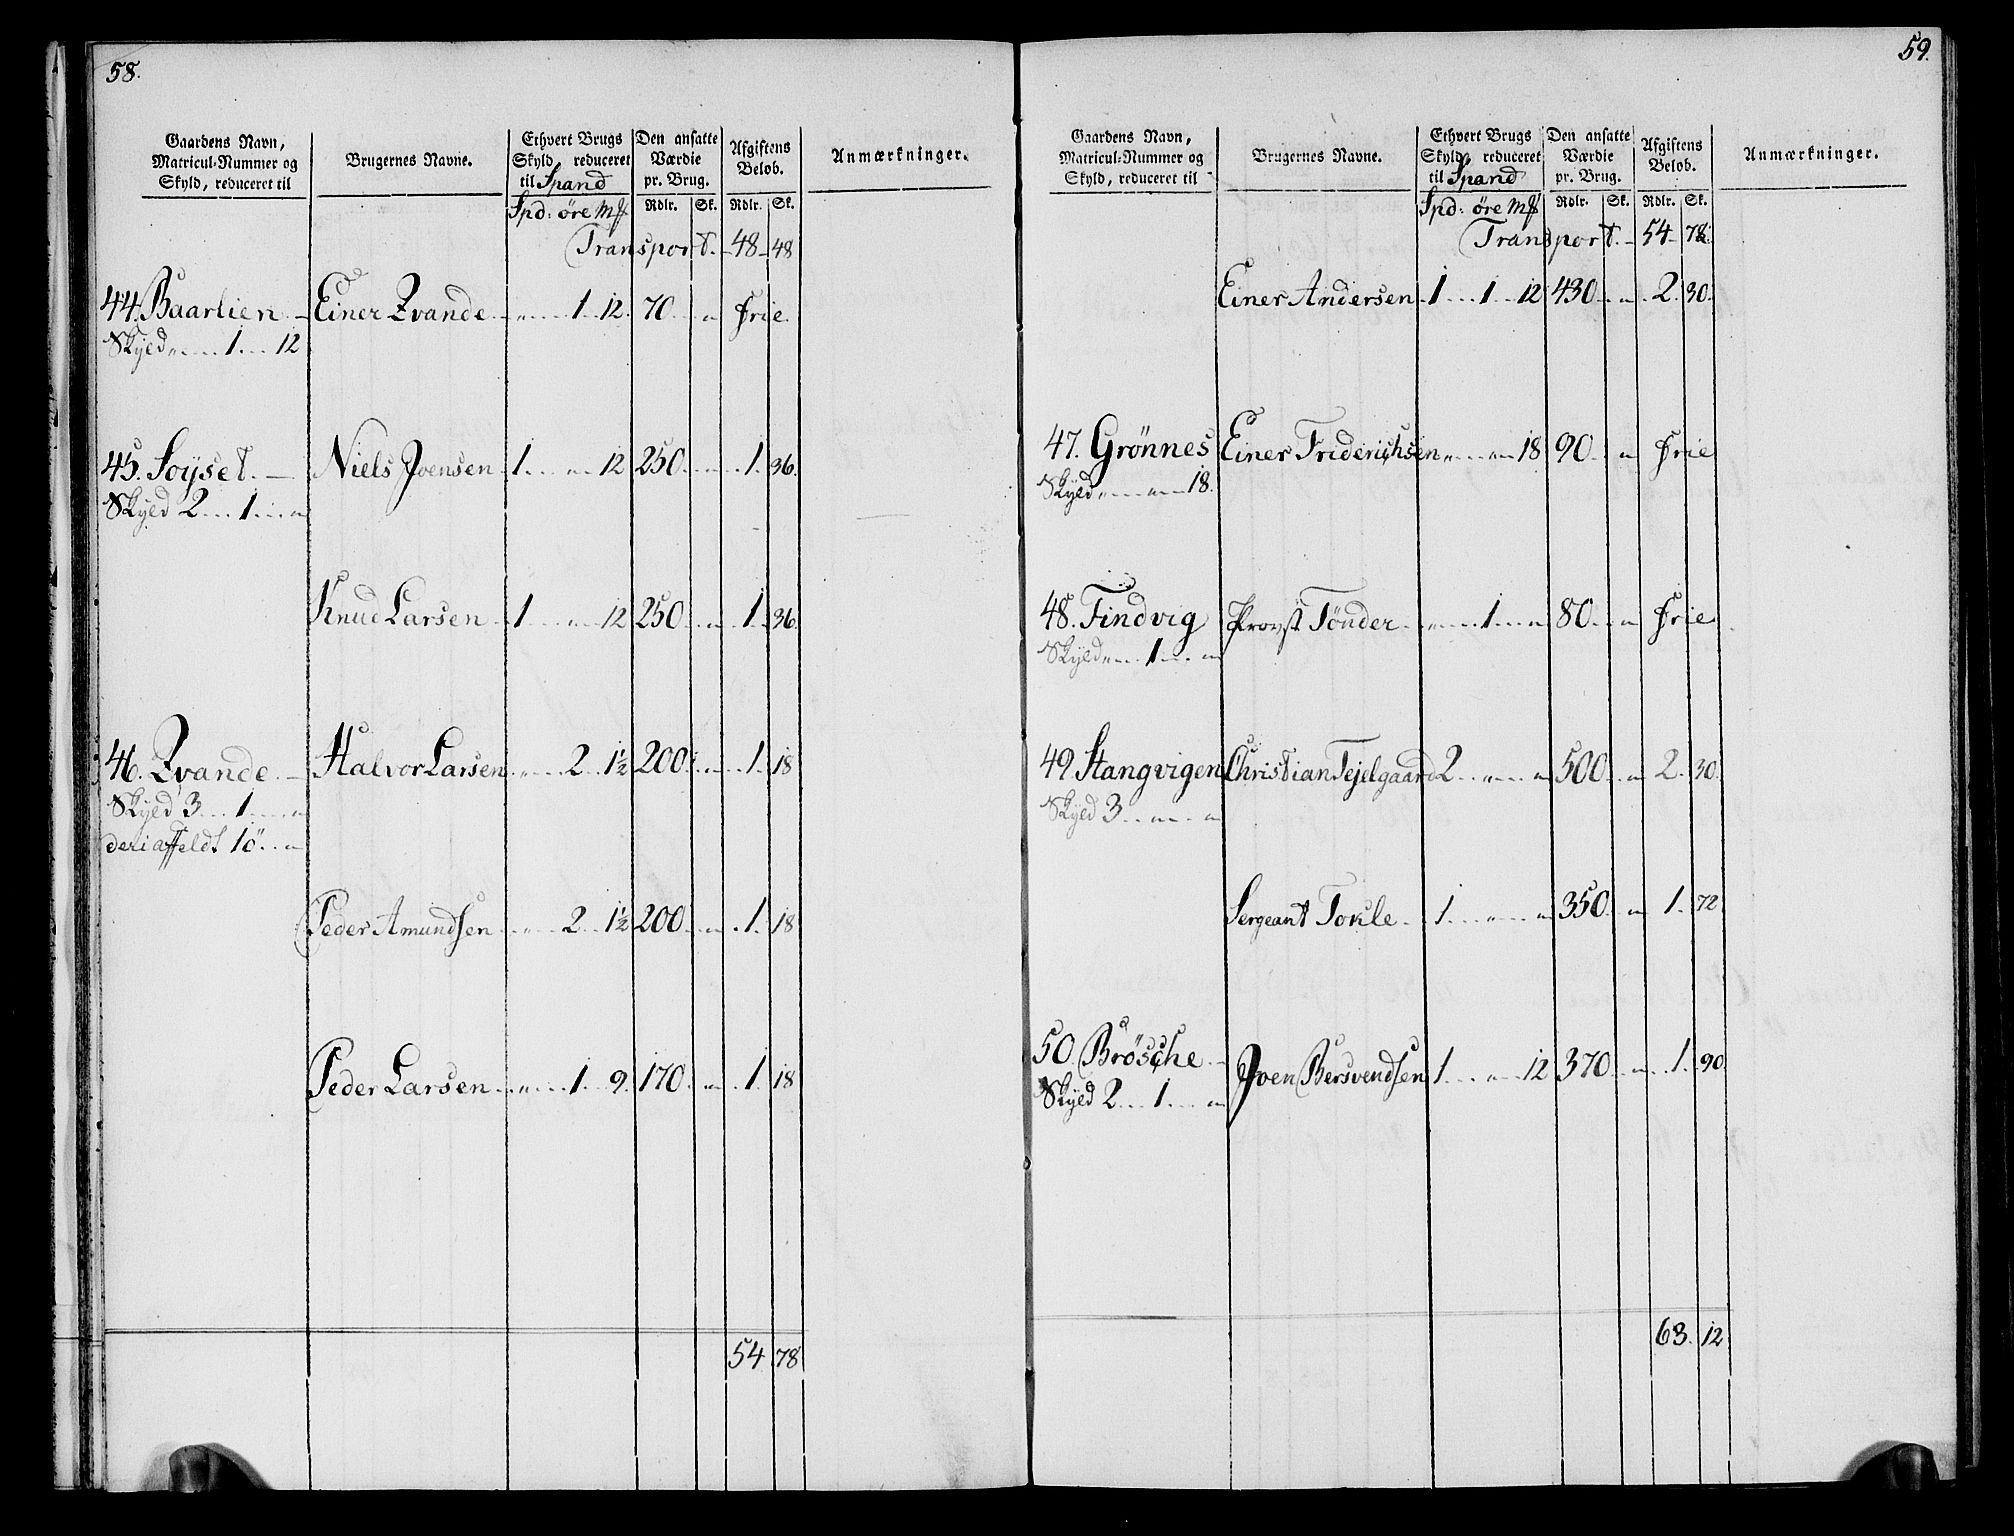 58.
Gaardens Navn, Matricul-Nummer og Skyld, reduceret til
Brugernes Navne.
Ethvert Brugs Skyld, reduceret til Spand
Den ansatte Værdie pr. Brug.
Afgiftens Beløb.
Anmærkninger.
Spd: öre Mſ Rdlr. Sk. Rdlr. Sk.
Transport. 48 48
44. Baarlien Einer Qvande „ 1 12. 70 „ Frie.
Skyld „ 1 12
45. Söyset. Niels Joensen 1 „ 12 250 „ 1. 36.
Skyld 2 1 „
Knud Larsen 1 „ 12 250 „ 1. 36.
46. Qvande Halvor Larsen „ 2 1½ 200 „ 1. 18
Skyld 3 1 „
deriaffeldt 10 „
Peder Amundsen „ 2 1½ 200 „ 1. 18
Peder Larsen „ 1 9. 170 „ 1. 18
54 78
59.
Gaardens Navn, Matricul-Nummer og Skyld, reduceret til
Brugernes Navne.
Ethvert Brugs Skyld, reduceret til Spand
Den ansatte Værdie pr. Brug.
Afgiftens Beløb.
Anmærkninger.
Spd: öre Mſ Rdlr. Sk. Rdlr. Sk.
Transport. 54 78.
Einer Andersen 1 1 12 430 „ 2. 30.
47. Grönnes Einer Friderichsen „ „ 18 90 „ Frie
Skyld „ „ 18.
48. Findvig Provst Tönder „ 1 „ 80 „ Frie
Skyld „ 1 „
49. Stangvigen Christian Tejelgaard 2 „ „ 500 „ 2. 30.
Skyld 3 „ „
Sergeant Tokle 1 „ „ 350 „ 1. 72
50. Brösche Joen Bersvendsen 1 „ 12 370 „ 1. 90
Skyld 2 1 „
63. 12